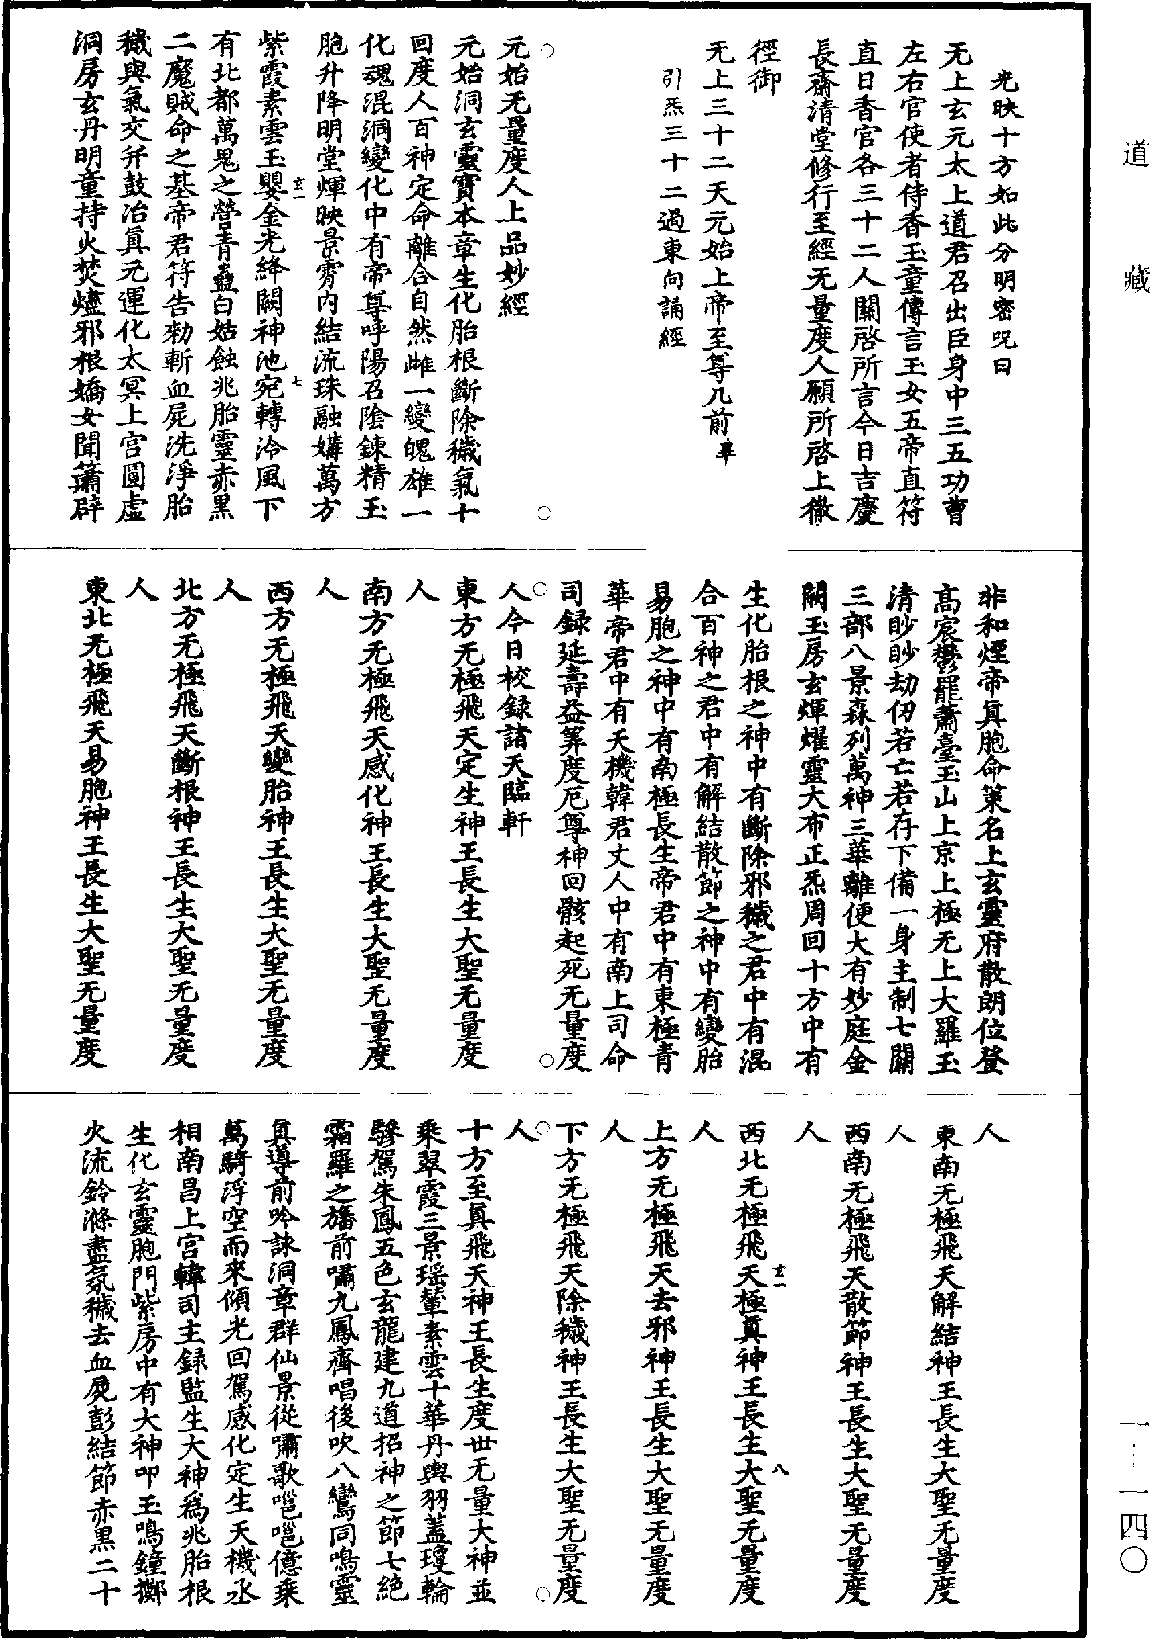 道藏
一一一四〇
光映十方如此分明密呪曰
无上玄元太上道君召出臣身中三五功曹
左右官使者侍香玉童傳言玉女五帝直符
直日香官各三十二人關啓所言今日吉慶
長齋清堂修行至經无量度人願所啓上徹
徑御
无上三十二天元始上帝至尊几前畢
引炁三十二過東向誦經
元始无量度人上品妙經
元始洞玄靈寶本章生化胎根斷除穢氣十
回度人百神定命離合自然雌一變魄雄一
化魂混洞變化中有帝尊呼陽召陰鍊精玉
胞升降明堂煇映景霄內結流珠融媾萬方
紫霞素雲玉嬰金光絳闕神池宛轉泠風下
玄一
七
有北都萬鬼之營青蠱白姑蝕兆胎靈赤黑
二魔賊命之基帝君符告勑斬血屍洗淨胎
穢與氣交并鼓冶真元運化太冥上宮圓虛
洞房玄丹明童持火焚燼邪根嬌女聞簫辟
非和煙帝真胞命策名上玄靈府散朗位登
高宸鬱羅蕭臺玉山上京上極无上大羅玉
清眇眇劫仞若亡若存下備一身主制七關
三部八景森列萬神三華離便大有妙庭金
闕玉房玄煇燿靈大布正炁周回十方中有
生化胎根之神中有斷除邪穢之君中有混
合百神之君中有解結散節之神中有變胎
易胞之神中有南極長生帝君中有東極青
華帝君中有天機韓君丈人中有南上司命
司錄延壽益筭度厄尊神回骸起死无量度
人今日校錄諸天臨軒
東方无極飛天定生神王長生大聖无量度
人
南方无極飛天感化神王長生大聖无量度
人
西方无極飛天變胎神王長生大聖无量度
人
北方无極飛天斷根神王長生大聖无量度
人
東北无極飛天易胞神王長生大聖无量度
人
東南无極飛天解結神王長生大聖无量度
人
西南无極飛天散節神王長生大聖无量度
人
西北无極飛天極真神王長生大聖无量度
玄一
八
人
上方无極飛天去邪神王長生大聖无量度
人
下方无極飛天除穢神王長生大聖无量度
人
十方至真飛天神王長生度世无量大神並
乘翠霞三景瑤輦素雲十華丹輿羽蓋瓊輪
驂駕朱鳳五色玄龍建九道招神之節七絕
霜羅之旛前嘯九鳳齊唱後吹八鸞同鳴靈
真導前吟詠洞章群仙景從嘯歌嗈嗈億乘
萬騎浮空而來傾光回駕感化定生天機丞
相南昌上宮韓司主錄監生大神爲兆胎根
生化玄靈胞門紫房中有大神叩玉鳴鐘擲
火流鈴滌盡氛穢去血屍彭結節赤黑二十